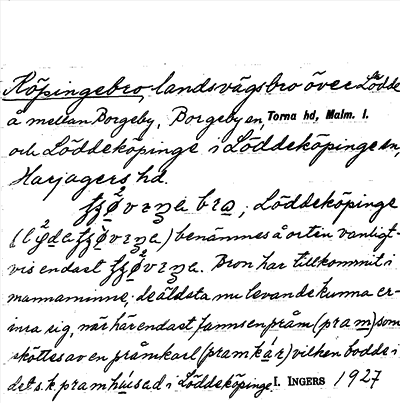 Köpingebro, landsvägsbro över Lödde
å mellan Borgeby, Borgeby sn, Torna hd, Malm. l.
och Löddeköpinge i Löddeköpinge sn,
Harjagers hd.
bro, Löddeköpinge
benämnes å orten vanligt-
vis endast Bron har tillkommit i
mannaminne; de äldsta nu levande kunna er-
inra sig, när här endast fanns en pråm (pram) som
sköttes av en pråmkarl (pramkár) vilken bodde i
det s. k. pramhúsad i Löddeköpinge I. INGERS 1927